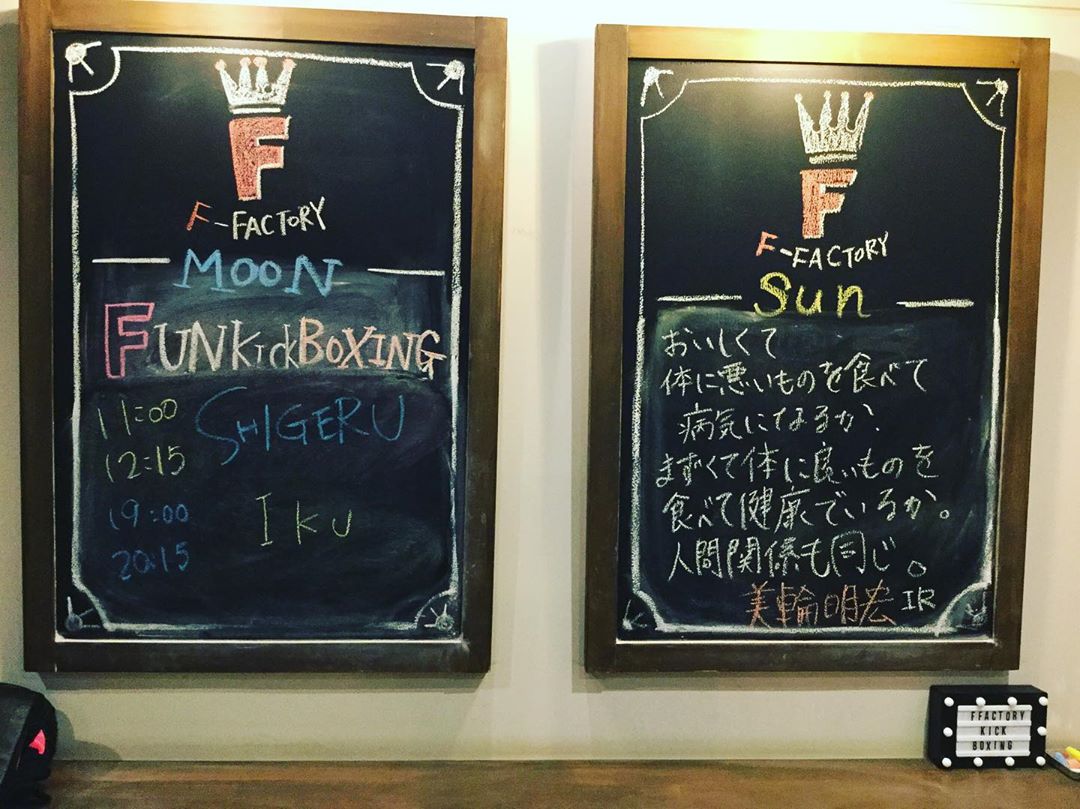 F
F-FACTORY
MOON
FUNKickBOXING
11:00
12:15
SHIGERU
19:00
20:15
IKU
F
F-FACTORY
Sun
おいしくて
体に悪いものを食べて
病気になるか、
まずくて体に良いものを
食べて健康でいるか。
人間関係も同じ。
美輪明宏 IR
FFACTORY
KICK
BOXING